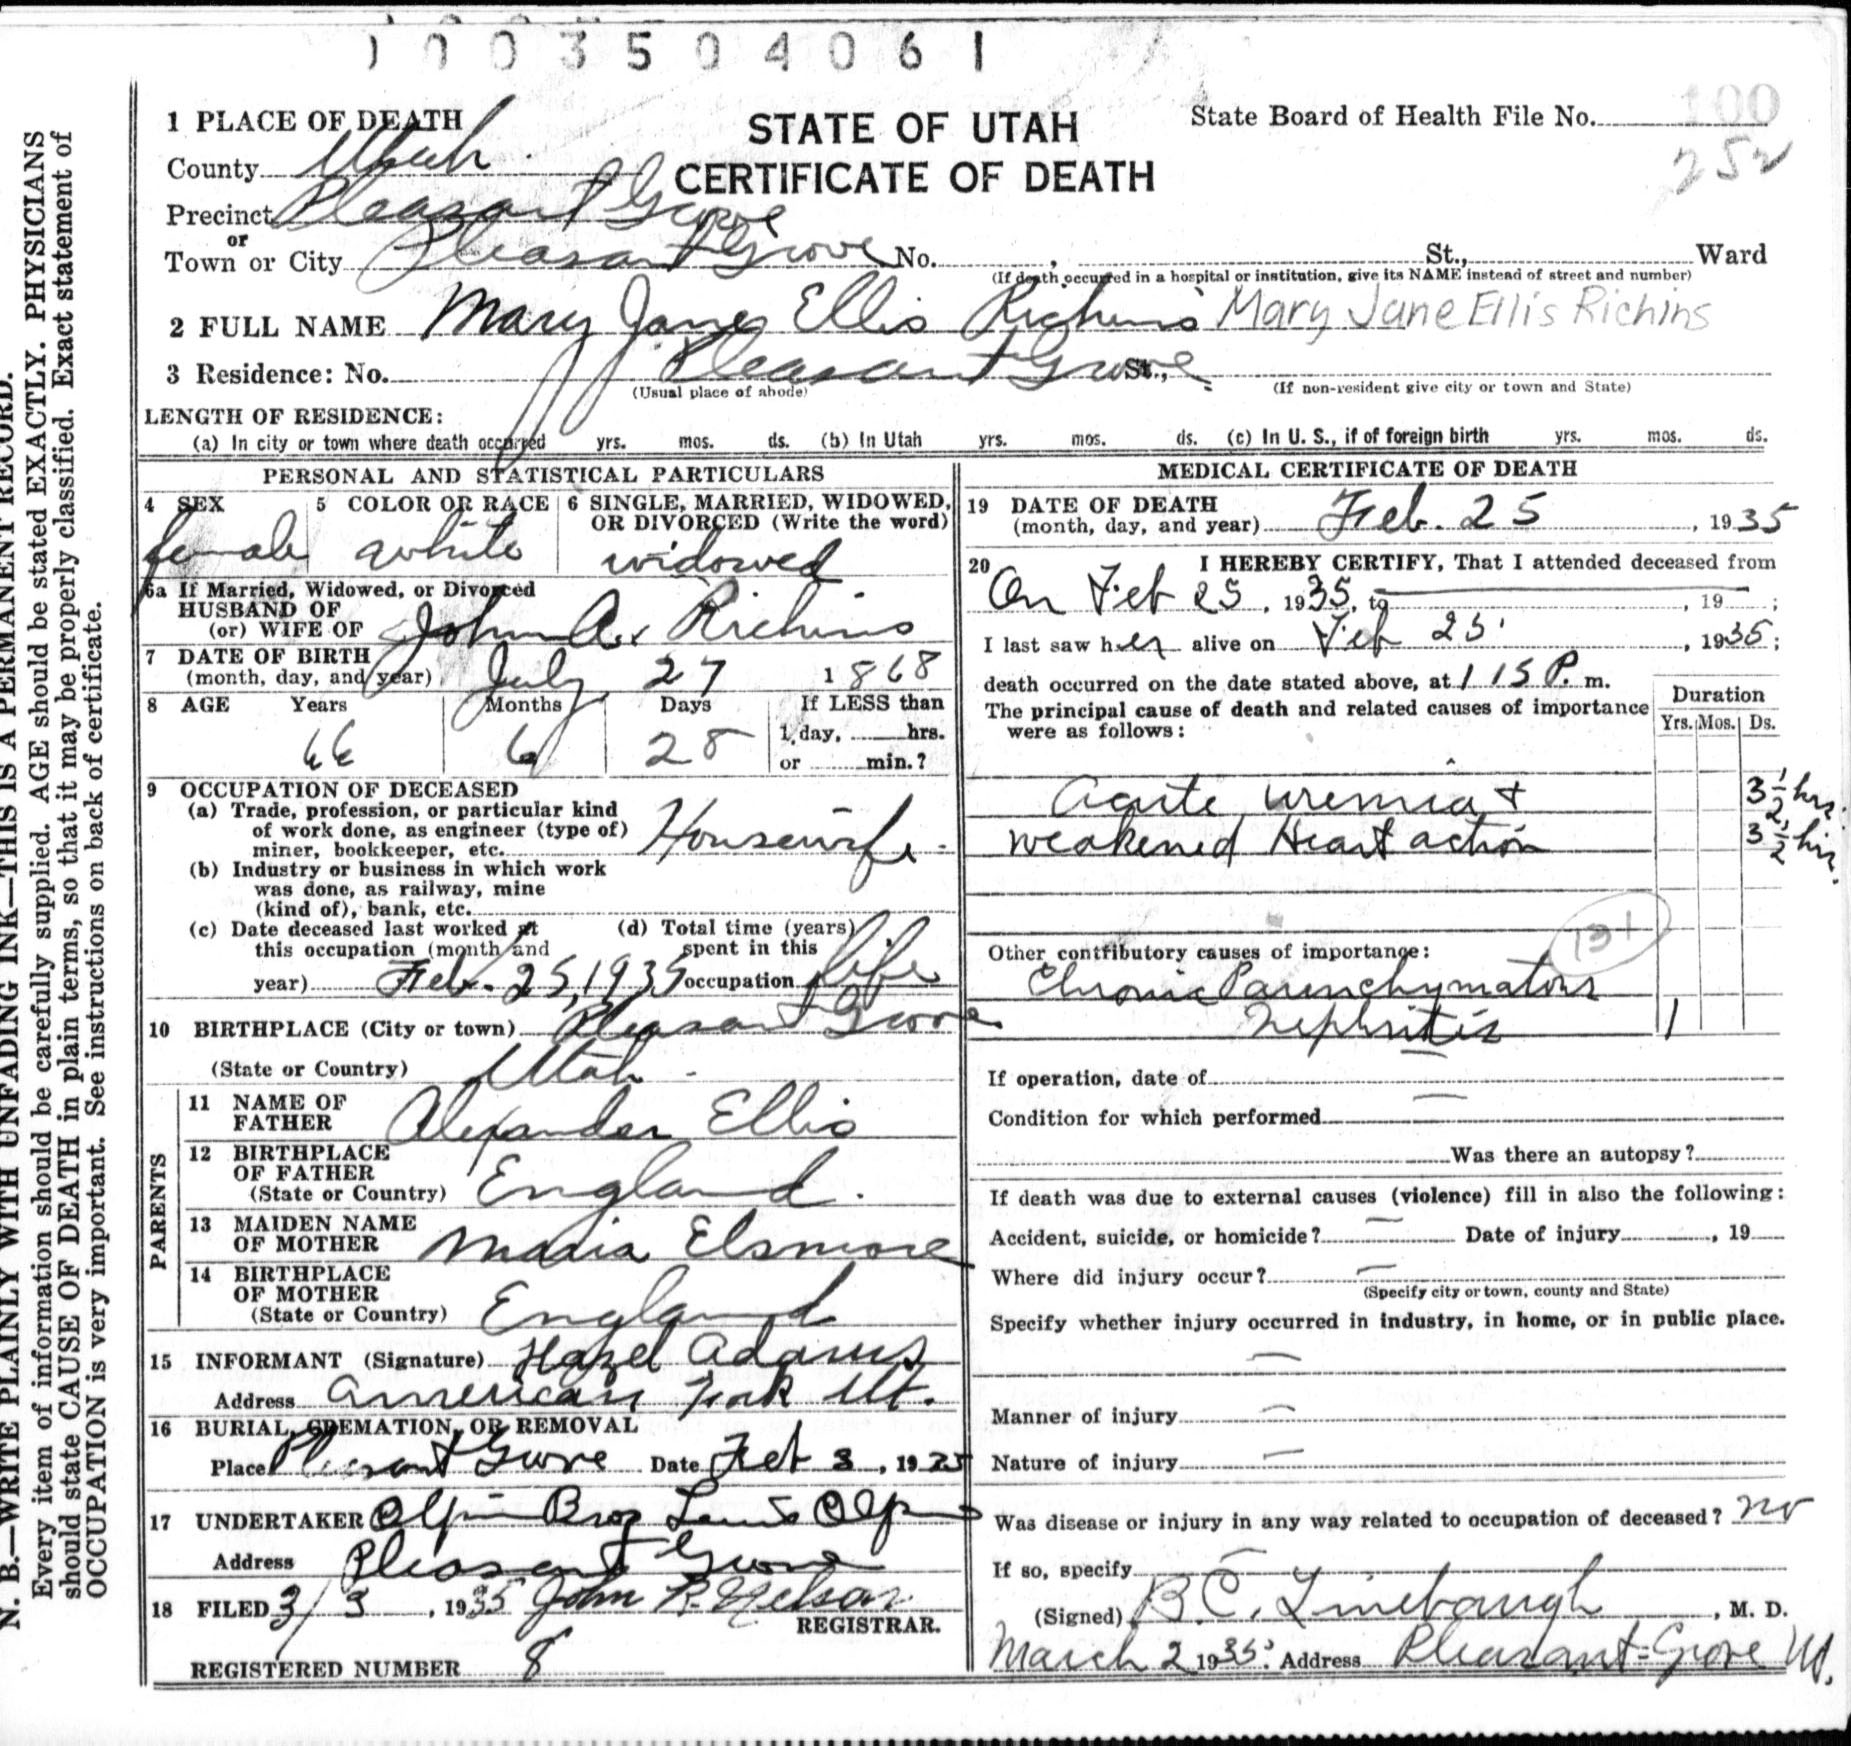 1003504061
1 PLACE OF DEATH
STATE OF UTAH
CERTIFICATE OF DEATH
State Board of Health File No. 100
252
County Utah
Precinct Pleasant Grove
or
Town or City Pleasant Grove No. , St., Ward
(If death occurred in a hospital or institution, give its NAME instead of street and number)
2 FULL NAME Mary Jane Ellis Richins Mary Jane Ellis Richins
3 Residence: No. Pleasant Grove St.,
(Usual place of abode) (If non-resident give city or town and State)
LENGTH OF RESIDENCE:
(a) In city or town where death occurred yrs. mos. ds. (b) In Utah yrs. mos. ds. (c) In U. S., if of foreign birth yrs. mos. ds.
PERSONAL AND STATISTICAL PARTICULARS
4 SEX 5 COLOR OR RACE 6 SINGLE, MARRIED, WIDOWED,
OR DIVORCED (Write the word)
female white widowed
6a If Married, Widowed, or Divorced
HUSBAND OF
(or) WIFE OF John A. Richins
7 DATE OF BIRTH
(month, day, and year) July 27 1868
8 AGE Years Months Days If LESS than
66 6 28 1 day, hrs.
or min.?
9 OCCUPATION OF DECEASED
(a) Trade, profession, or particular kind
of work done, as engineer (type of)
miner, bookkeeper, etc. Housewife
(b) Industry or business in which work
was done, as railway, mine
(kind of), bank, etc.
(c) Date deceased last worked at
this occupation (month and
year) Feb. 25, 1935
(d) Total time (years)
spent in this
occupation life
10 BIRTHPLACE (City or town) Pleasant Grove
(State or Country) Utah
PARENTS
11 NAME OF
FATHER Alexander Ellis
12 BIRTHPLACE
OF FATHER
(State or Country) England.
13 MAIDEN NAME
OF MOTHER Maria Elsmore
14 BIRTHPLACE
OF MOTHER
(State or Country) England
15 INFORMANT (Signature) Hazel Adams
Address American Fork Ut.
16 BURIAL, CREMATION, OR REMOVAL
Place Pleasant Grove Date Feb 3, 1935
17 UNDERTAKER Olpin Bros Lewis Olpin
Address Pleasant Grove
18 FILED 3/3, 1935 John R. Nelson
REGISTRAR.
REGISTERED NUMBER 8
MEDICAL CERTIFICATE OF DEATH
19 DATE OF DEATH
(month, day, and year) Feb. 25, 1935
20 I HEREBY CERTIFY, That I attended deceased from
On Feb 25, 1935, to , 19 ;
I last saw her alive on Feb 25, 1935;
death occurred on the date stated above, at 1 15 P. m.
The principal cause of death and related causes of importance
were as follows:
Duration
Yrs. Mos. Ds.
Acute uremia & 3 1/2 hrs.
weakened Heart action 3 1/2 hrs.
131
Other contributory causes of importance:
Chronic Parenchymatous
Nephritis 1
If operation, date of
Condition for which performed
Was there an autopsy?
If death was due to external causes (violence) fill in also the following:
Accident, suicide, or homicide? Date of injury , 19
Where did injury occur?
(Specify city or town, county and State)
Specify whether injury occurred in industry, in home, or in public place.
Manner of injury
Nature of injury
Was disease or injury in any way related to occupation of deceased? no
If so, specify
(Signed) B. C. Linebaugh, M. D.
March 2 1935. Address Pleasant Grove Ut.
N. B.—WRITE PLAINLY WITH UNFADING INK—THIS IS A PERMANENT RECORD.
Every item of information should be carefully supplied. AGE should be stated EXACTLY. PHYSICIANS
should state CAUSE OF DEATH in plain terms, so that it may be properly classified. Exact statement of
OCCUPATION is very important. See instructions on back of certificate.